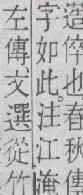 選倅也春秋
字如此注江淹
左傳文選從竹